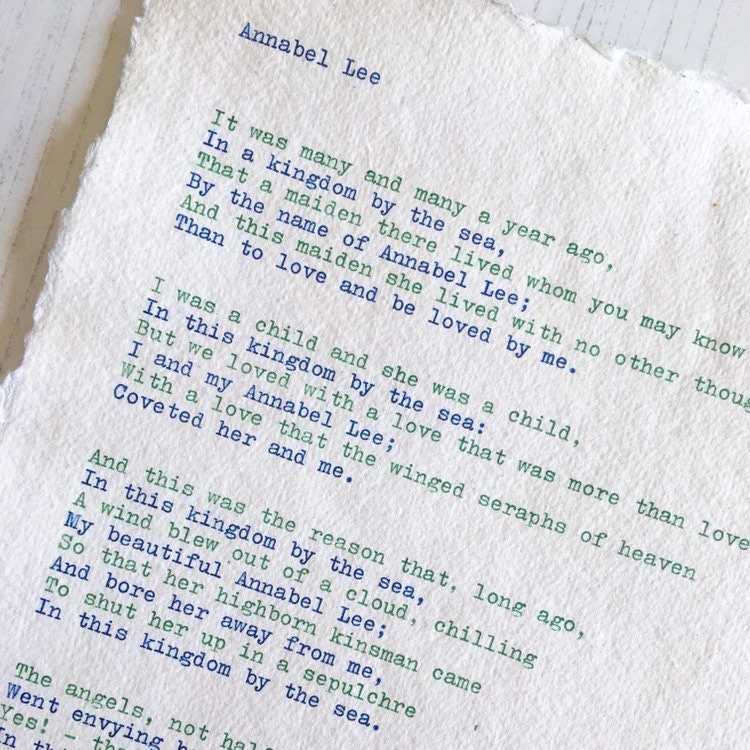 Annabel Lee
It was many and many a year ago,
In a kingdom by the sea,
That a maiden there lived whom you may know
By the name of Annabel Lee;
And this maiden she lived with no other
Than to love and be loved by me.
I was a child and she was a child,
In this kingdom by the sea:
But we loved with a love that was more than love
I and my Annabel Lee;
With a love that the winged seraphs of heaven
Coveted her and me.
And this was the reason that, long ago,
In this kingdom by the sea,
A wind blew out of a cloud, chilling
My beautiful Annabel Lee;
So that her highborn kinsman came
And bore her away from me,
To shut her up in a sepulchre
In this kingdom by the sea.
The angels, not
Went envying
Yes! -
In